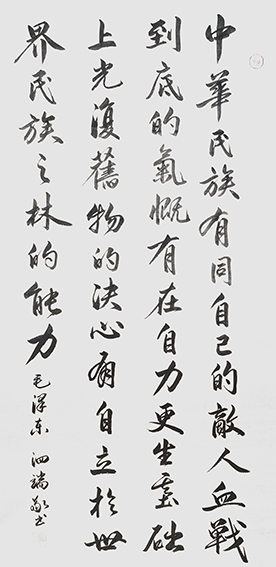 中華民族有同自己的敵人血戰
到底的氣慨有在自力更生基础
上光復舊物的决心有自立於世
界民族之林的能力 毛澤东 泗瑞敬书